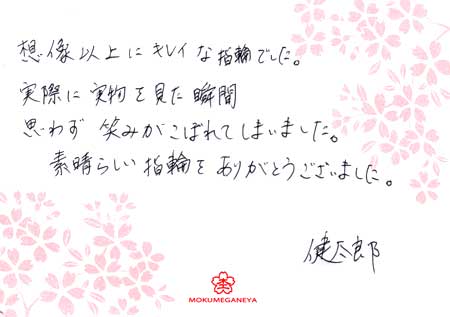 想像以上にキレイな指輪でした。
実際に実物を見た瞬間
思わず 笑みがこぼれてしまいました。
素晴らしい指輪をありがとうございました。
健太郎
MOKUMEGANEYA